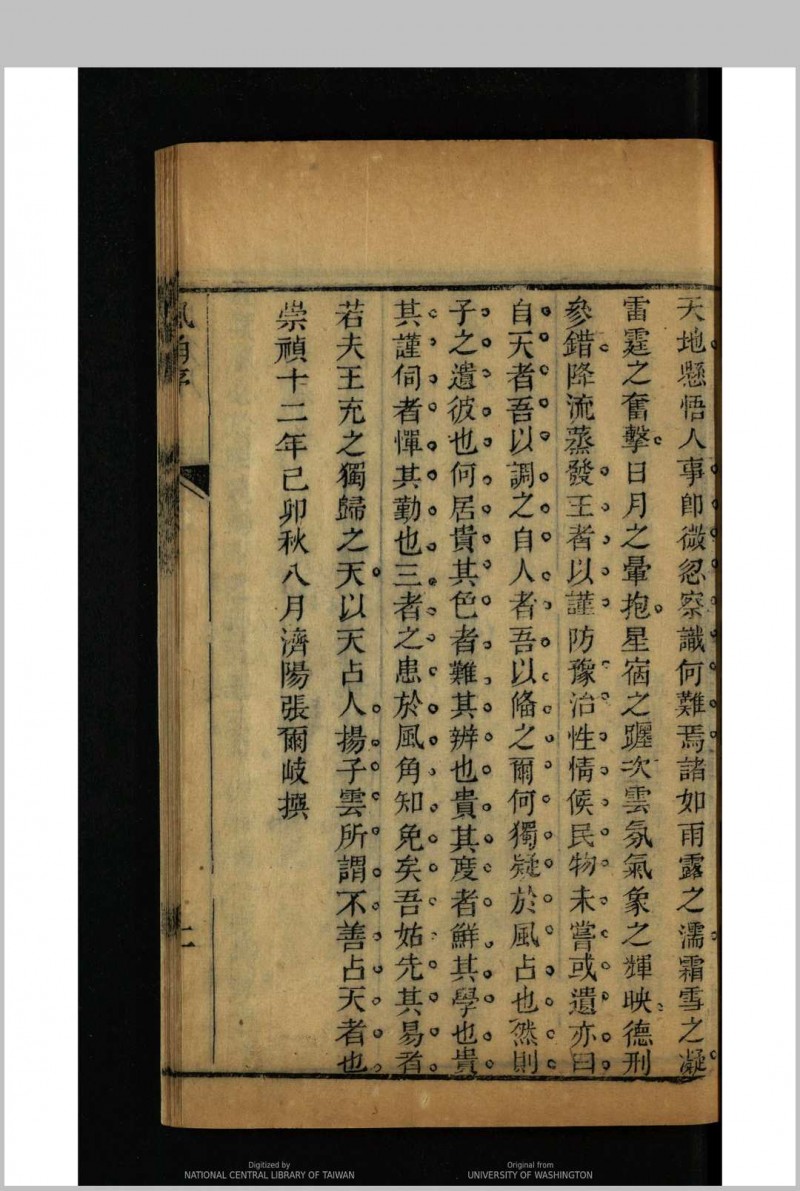 天地懸悟人事卽微忽察識何難焉諸如雨露之濡霜雪之凝
雷霆之奮擊日月之暈抱星宿之躔次雲氛氣象之輝映德刑
參錯降流蒸發王者以謹防豫治性情候民物未嘗或遺亦曰
自天者吾以調之自人者吾以偹之爾何獨疑於風占也然則
子之遺彼也何居貴其色者難其辨也貴其度者鮮其學也貴
其謹伺者憚其勤也三者之患於風角知免矣吾姑先其易者
若夫王充之獨歸之天以天占人揚子雲所謂不善占天者也
崇禎十二年己卯秋八月濟陽張爾岐撰
風角序
Digitized by
NATIONAL CENTRAL LIBRARY OF TAIWAN
Original from
UNIVERSITY OF WASHINGTON